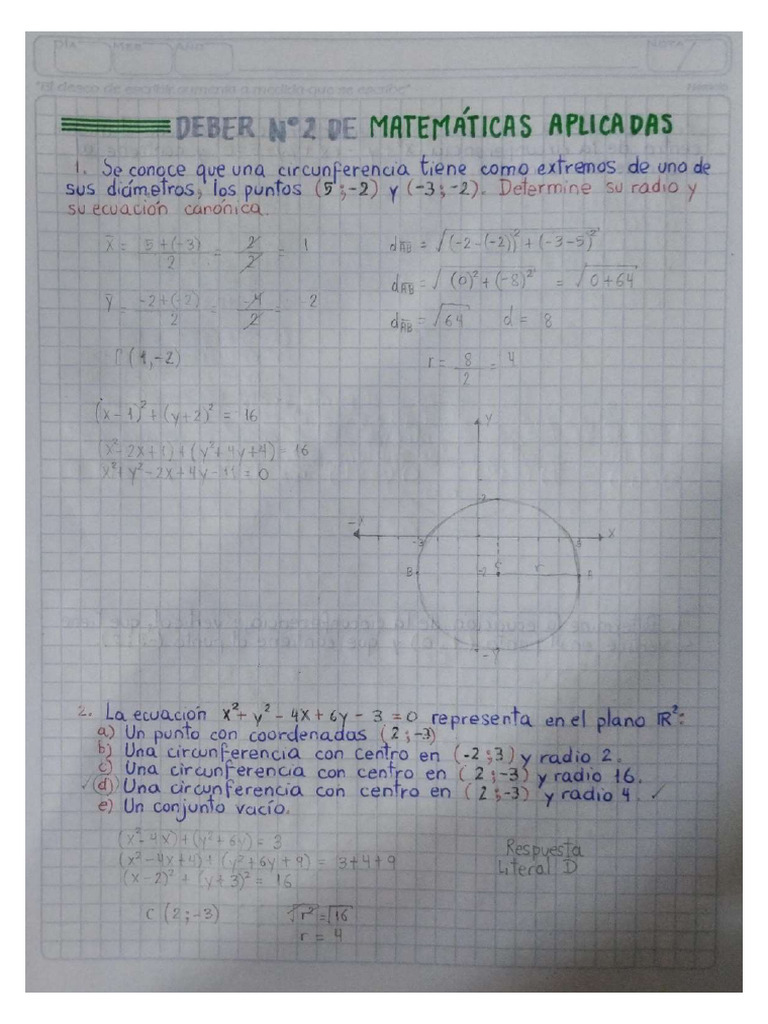 DÍA MES AÑO NOTA
"El deseo de escribir aumenta a medida que se escribe"
DEBER N°2 DE MATEMÁTICAS APLICADAS
1. Se conoce que una circunferencia tiene como extremos de uno de
sus diámetros, los puntos (5;-2) y (-3;-2). Determine su radio y
su ecuación canónica.
x̄ = 5+(-3)/2 = 2/2 = 1
ȳ = -2+(-2)/2 = -4/2 = -2
P(1,-2)
d_AB = √(-2-(-2))²+(-3-5)²
d_AB = √(0)²+(-8)² = √0+64
d_AB = √64 d = 8
r = 8/2 = 4
(x-1)²+(y+2)² = 16
(x²-2x+1)+(y²+4y+4)=16
x²+y²-2x+4y-11=0
Y
2
-X -3 5 X
B -2 C r A
-Y
2. La ecuación x²+y²-4x+6y-3=0 representa en el plano ℝ²:
a) Un punto con coordenadas (2;-3)
b) Una circunferencia con centro en (-2;3) y radio 2.
c) Una circunferencia con centro en (2;-3) y radio 16.
✓(d) Una circunferencia con centro en (2;-3) y radio 4. ✓
e) Un conjunto vacío.
(x²-4x)+(y²+6y)=3
(x²-4x+4)+(y²+6y+9) = 3+4+9
(x-2)² + (y+3)² = 16
C (2;-3) √r²=√16
r = 4
Respuesta
Literal D